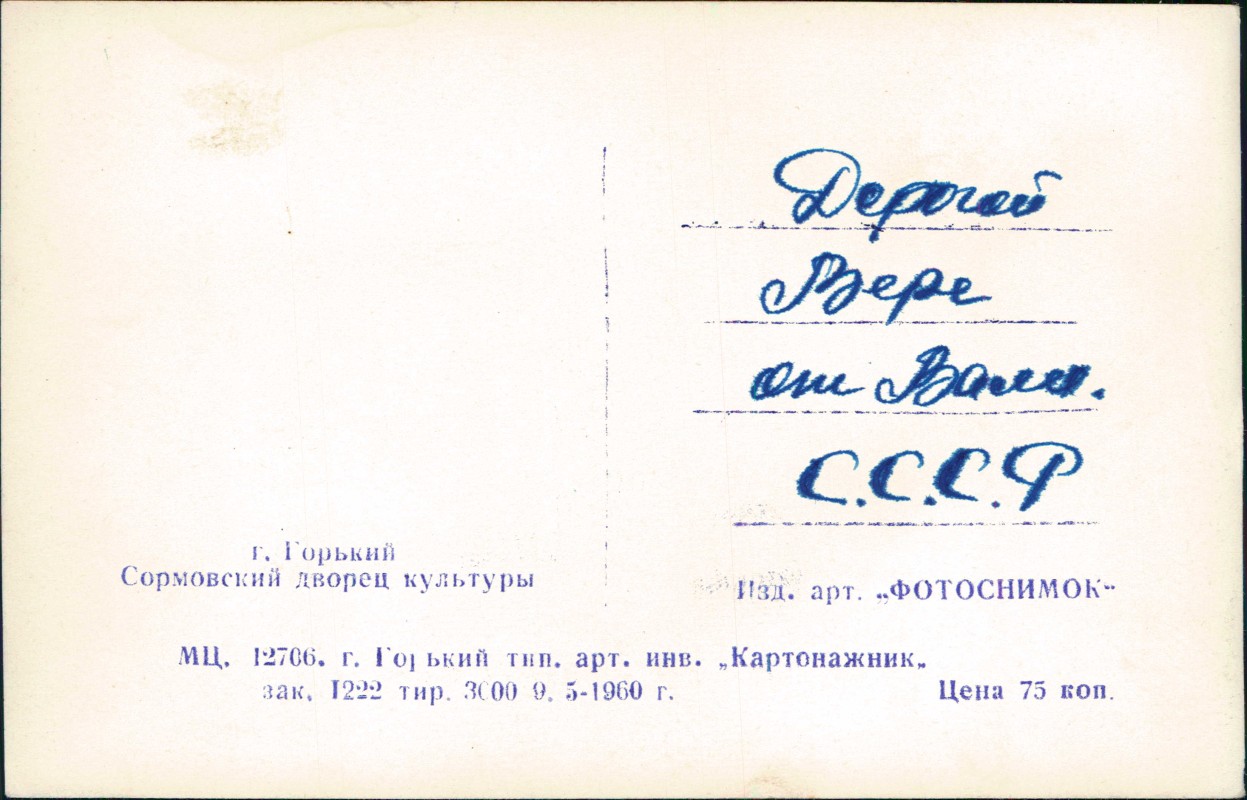 Дорогой
Вере
от Вали.
С.С.С.Р
г. Горький
Сормовский дворец культуры
Изд. арт. „ФОТОСНИМОК“
МЦ. 12706. г. Горький тип. арт. инв. „Картонажник„
зак. 1222 тир. 3000 9. 5-1960 г.
Цена 75 коп.